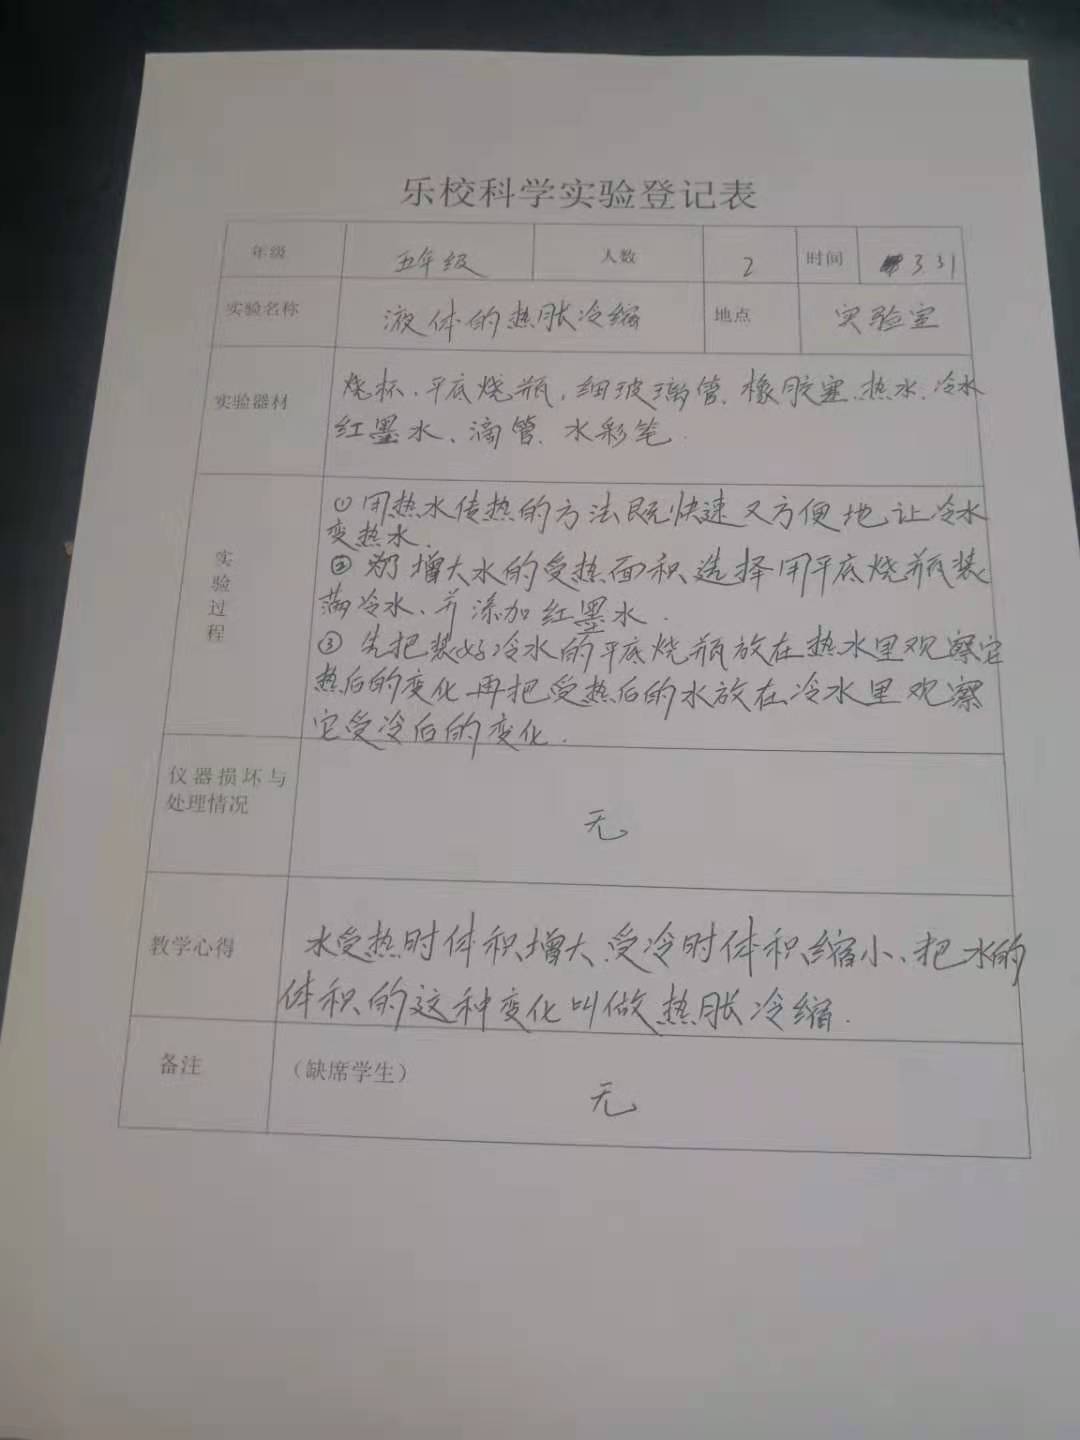 乐校科学实验登记表
年级 五年级 人数 2 时间 331
实验名称 液体的热胀冷缩 地点 实验室
实验器材 烧杯、平底烧瓶、细玻璃管、橡胶塞、热水、冷水
红墨水、滴管、水彩笔.
实验过程
① 用热水传热的方法既快速又方便地让冷水
变热水.
② 为了增大水的受热面积选择用平底烧瓶装
满冷水、并添加红墨水.
③ 先把装好冷水的平底烧瓶放在热水里观察它
热后的变化再把受热后的水放在冷水里观察
它受冷后的变化.
仪器损坏与
处理情况
无
教学心得 水受热时体积增大、受冷时体积缩小、把水的
体积的这种变化叫做热胀冷缩.
备注 （缺席学生）
无